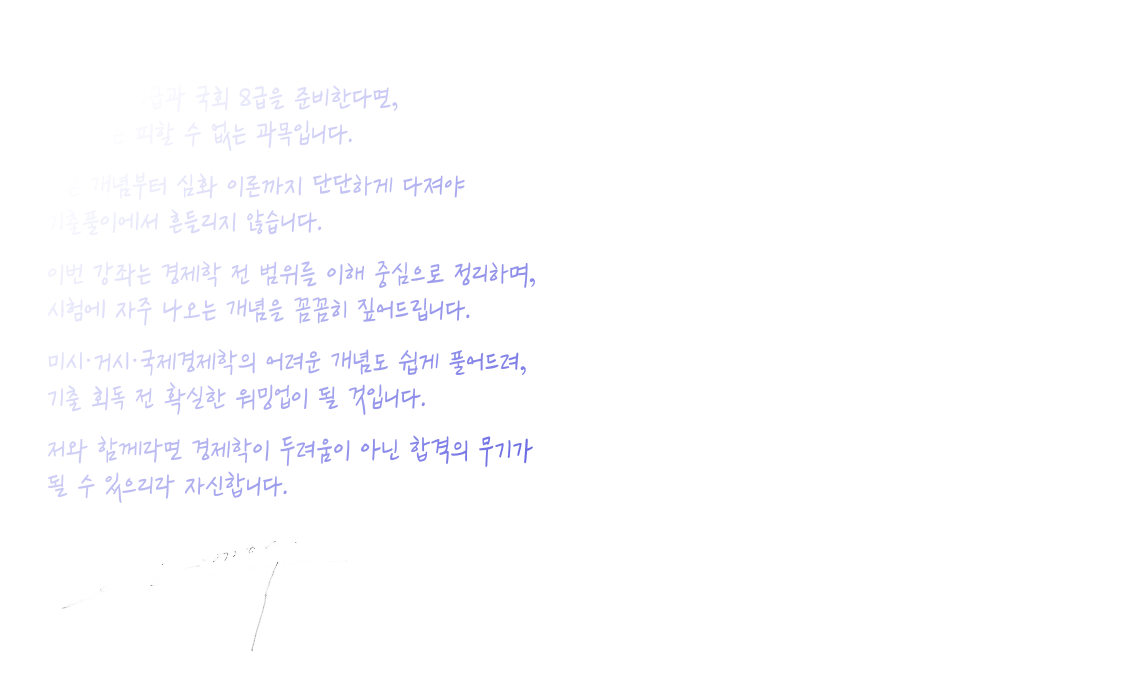 국회 8급을 준비한다면,
피할 수 없는 과목입니다.
개념부터 심화 이론까지 단단하게 다져야
기출풀이에서 흔들리지 않습니다.
이번 강좌는 경제학 전 범위를 이해 중심으로 정리하며,
시험에 자주 나오는 개념을 꼼꼼히 짚어드립니다.
미시·거시·국제경제학의 어려운 개념도 쉽게 풀어드려,
기출 회독 전 확실한 워밍업이 될 것입니다.
저와 함께라면 경제학이 두려움이 아닌 합격의 무기가
될 수 있으리라 자신합니다.